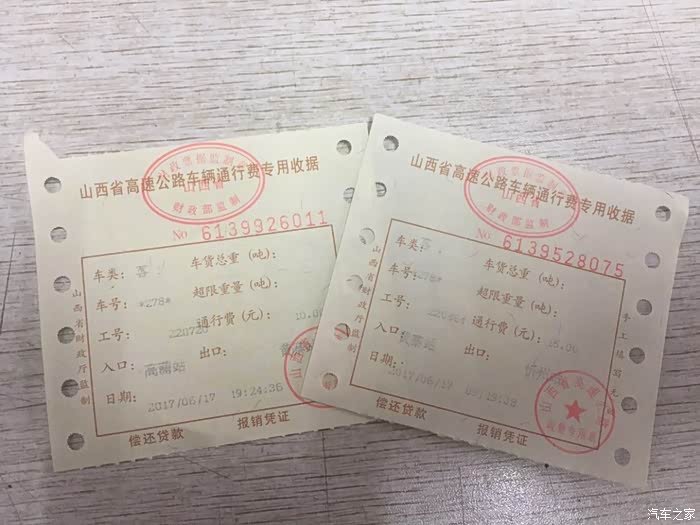 山西省高速公路车辆通行费专用收据
财政票据监制
山西省
财政部监制
No 6139926011
车类：客
车货总重（吨）：
车号：*278*
超限重量（吨）：
工号：220720
通行费（元）：10.00
入口：
出口：
日期：2017/06/17 19:24:36
偿还贷款 报销凭证
山西省财政厅监制
山西省高速公路车辆通行费专用收据
山西省
财政部监制
No 6139528075
车类：客
车货总重（吨）：
车号：*278*
超限重量（吨）：
工号：
通行费（元）：15.00
入口：
出口：忻州
日期：2017/06/17
偿还贷款 报销凭证
山西省财政厅监制
手工填写无
山西省高速
汽车之家